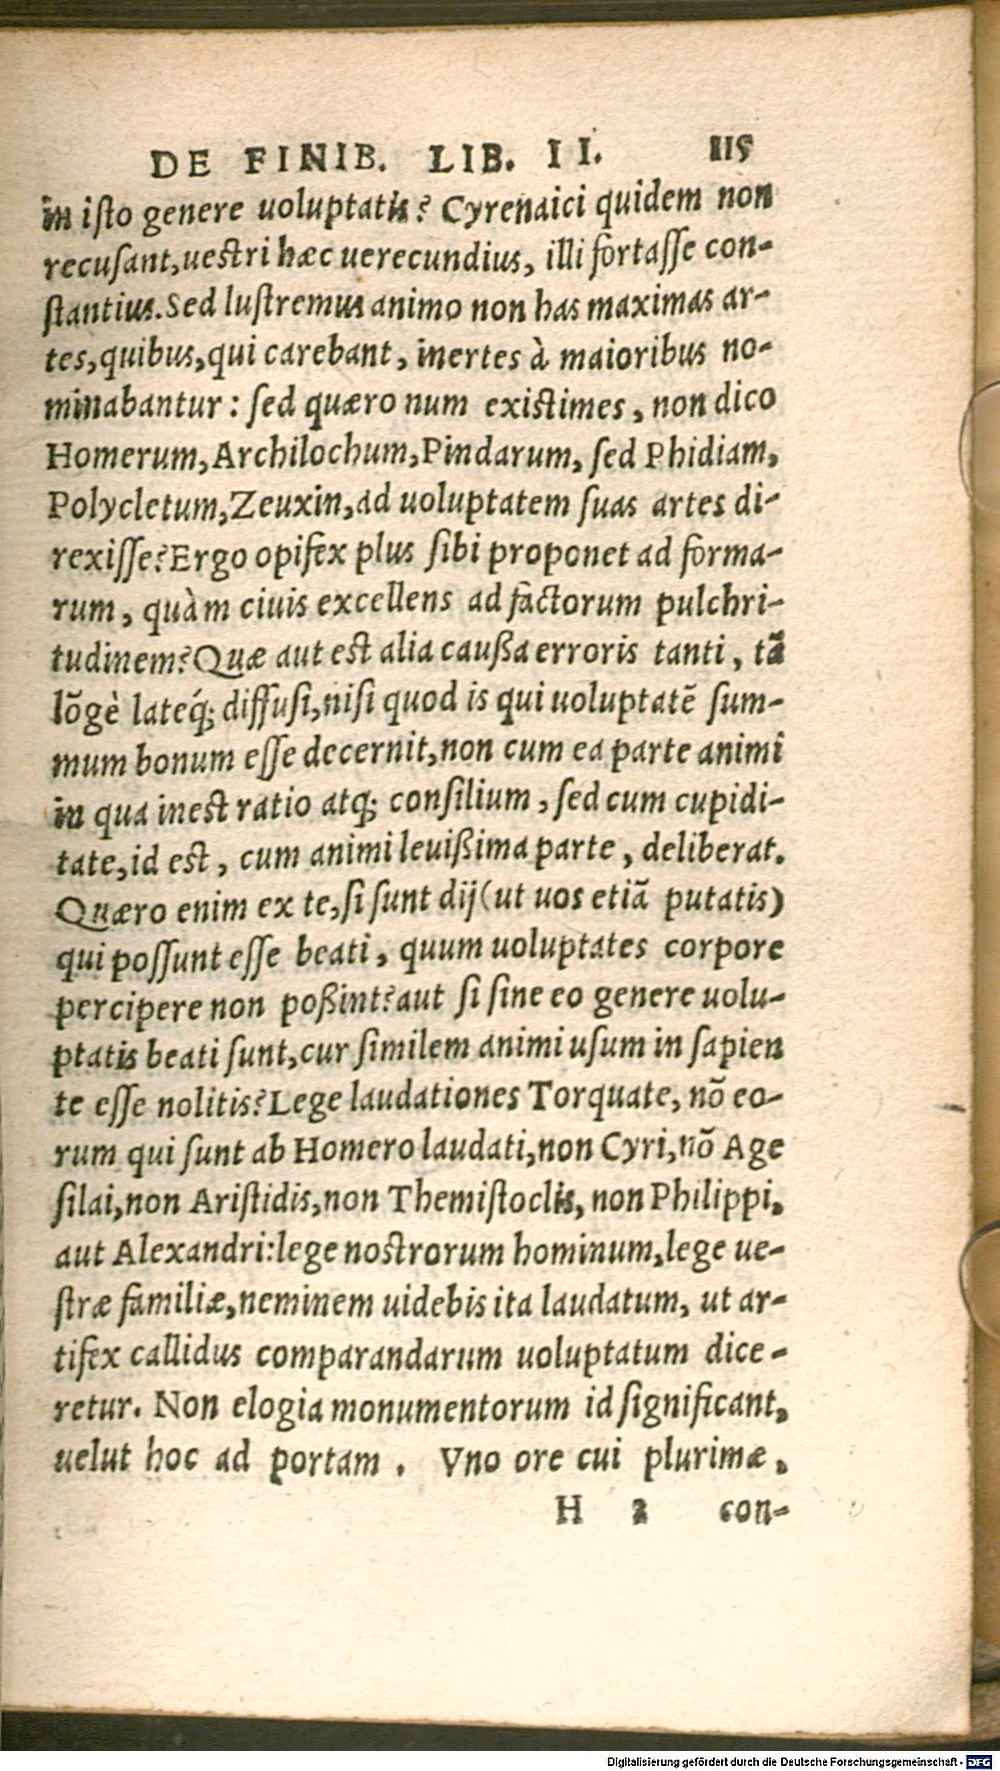 DE FINIB. LIB. II. 115
in isto genere uoluptatis? Cyrenaici quidem non
recusant, uestri hæc uerecundius, illi fortasse con-
stantius. Sed lustremus animo non has maximas ar-
tes, quibus, qui carebant, inertes à maioribus no-
minabantur: sed quæro num existimes, non dico
Homerum, Archilochum, Pindarum, sed Phidiam,
Polycletum, Zeuxin, ad uoluptatem suas artes di-
rexisse? Ergo opifex plus sibi proponet ad forma-
rum, quàm ciuis excellens ad factorum pulchri-
tudinem? Quæ aut est alia caußa erroris tanti, tã
lõgè lateq́; diffusi, nisi quod is qui uoluptatẽ sum-
mum bonum esse decernit, non cum ea parte animi
in qua inest ratio atq; consilium, sed cum cupidi-
tate, id est, cum animi leuißima parte, deliberat.
Quæro enim ex te, si sunt dij (ut uos etiã putatis)
qui possunt esse beati, quum uoluptates corpore
percipere non poßint? aut si sine eo genere uolu-
ptatis beati sunt, cur similem animi usum in sapien
te esse nolitis? Lege laudationes Torquate, nõ eo-
rum qui sunt ab Homero laudati, non Cyri, nõ Age
silai, non Aristidis, non Themistoclis, non Philippi,
aut Alexandri: lege nostrorum hominum, lege ue-
stræ familiæ, neminem uidebis ita laudatum, ut ar-
tifex callidus comparandarum uoluptatum dice-
retur. Non elogia monumentorum id significant,
uelut hoc ad portam. Vno ore cui plurimæ,
H 2 con-
Digitalisierung gefördert durch die Deutsche Forschungsgemeinschaft - DFG